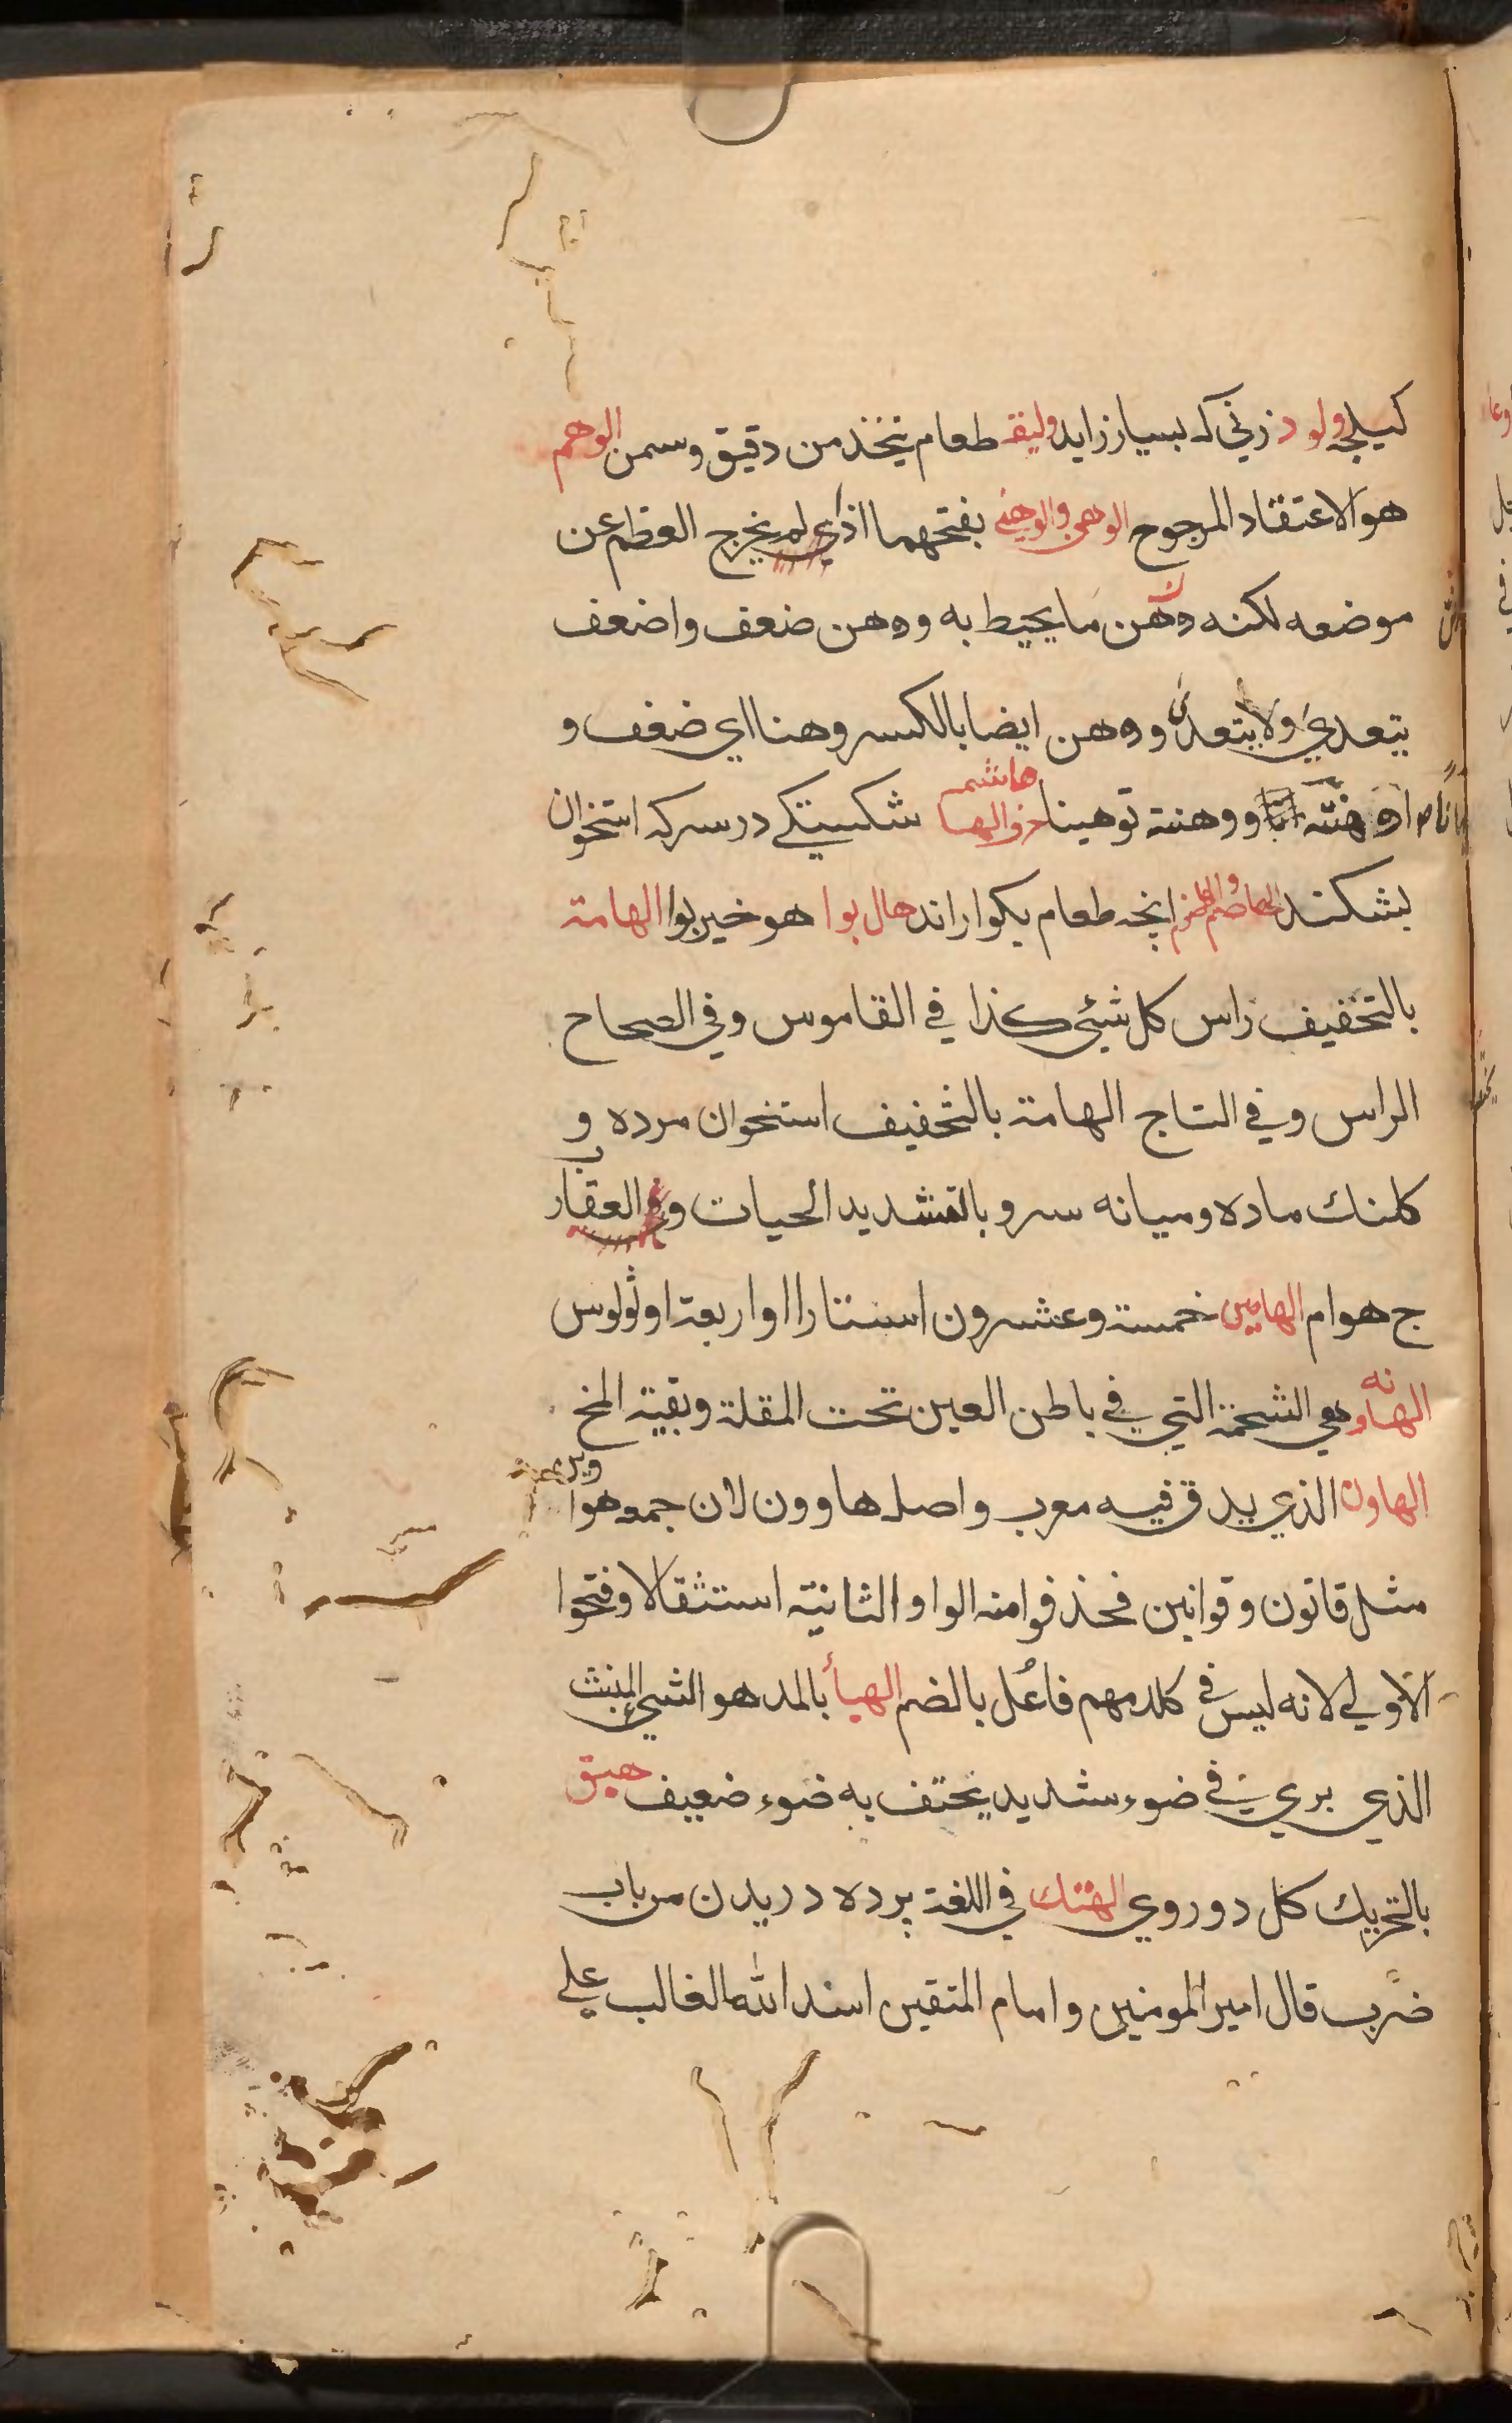 كيلجه ولود زني كه بسيار زايد وليقه طعام يتخذ من دقيق وسمن الوهم
هو الاعتقاد المرجوح الوهي والوهنى بفتحهما اذاي لم يخرج العظم عن
موضعه لكنه وهن ما يحيط به ووهن ضعف واضعف
يتعدي ولا يتعدي ووهن ايضا بالكسر وهنا اي ضعف و
اوهنته ووهنته توهينا هاشمه شكستكي در سر كه استخوان
بشكند الهاضوم انچه طعام بكواراند هال بوا هو خير بوا الهامة
بالتخفيف راس كل شيئ كذا في القاموس وفي الصحاح
الراس وفي التاج الهامة بالتخفيف استخوان مرده و
كلنك ماده وميانه سر و بالتشديد الحيات و العقارب
ج هوام الهامين خمسة وعشرون استارا او اربعة اوثولوس
الهانه وهي الشحمة التي في باطن العين تحت المقلة وبقية المخ
الهاون الذي يدق فيه معرب واصله هاوون لان جمعه هواوين
مثل قانون وقوانين فحذفوا منه الواو الثانية استثقالا وفتحوا
الاولي لانه ليس في كلامهم فاعُل بالضم الهبأ بالمد هو الشيئ المنبث
الذي يري في ضوء شديد يحتف به ضوء ضعيف هبق
بالتحريك كل دو روي الهتك في اللغة پرده دريدن من باب
ضرب قال امير المومنين وامام المتقين اسد الله الغالب علي